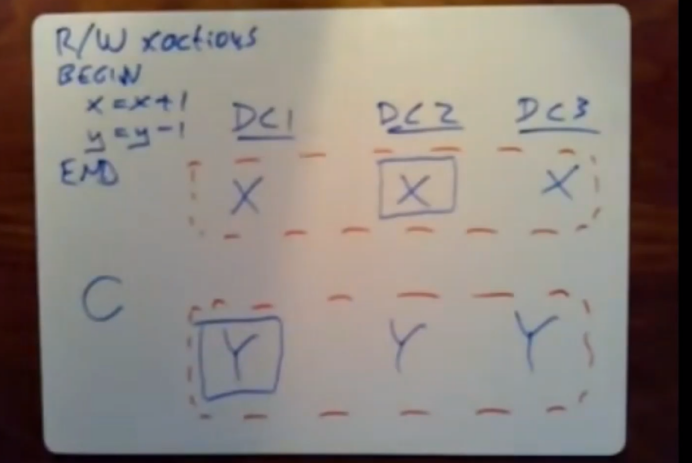 R/W xactions
BEGIN
x = x+1
y = y-1
END
DC1 DC2 DC3
X X X
C
Y Y Y